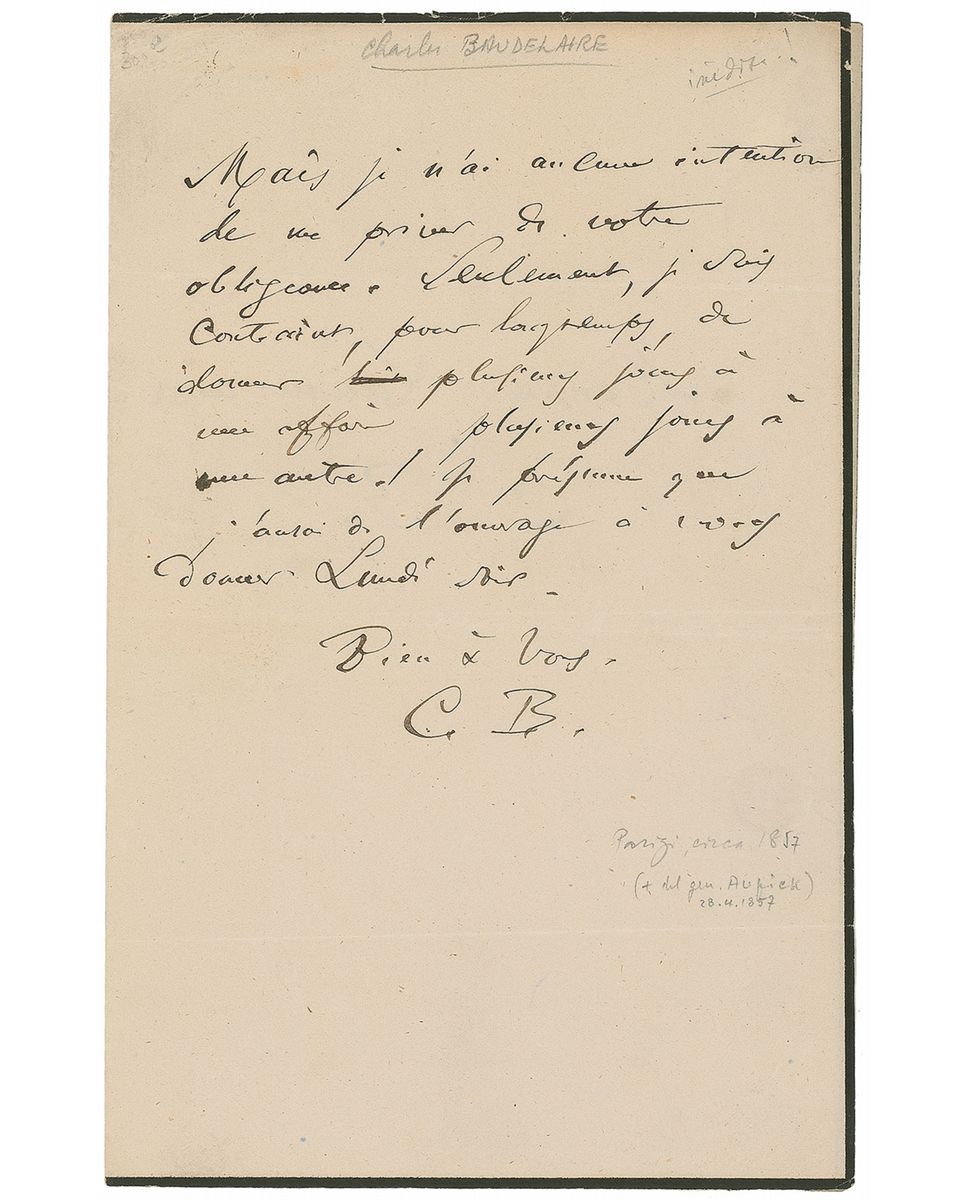 Charles BAUDELAIRE
inédite!
Mais je n'ai aucune intention
de me priver de votre
obligeance. Seulement, je suis
contraint, pour longtemps, de
donner plusieurs jours à
une affaire plusieurs jours à
une autre. Je présume que
j'aurai de l'ouvrage à vous
donner Lundi soir.
Bien à vous.
C. B.
Parigi, circa 1857
(+ del gen. Aupick)
28.4.1857